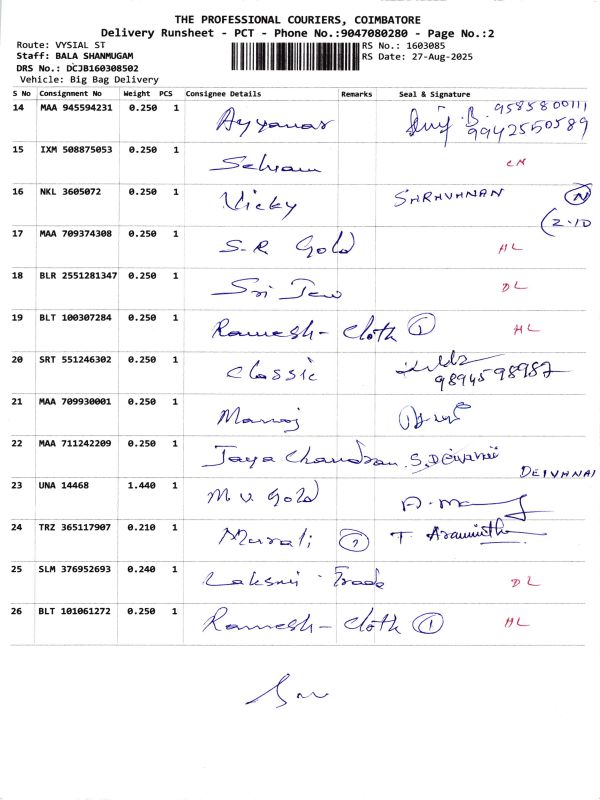 THE PROFESSIONAL COURIERS, COIMBATORE
Delivery Runsheet - PCT - Phone No.:9047080280 - Page No.:2
Route: VYSIAL ST
Staff: BALA SHANMUGAM
DRS No.: DCJB160308502
Vehicle: Big Bag Delivery
RS No.: 1603085
RS Date: 27-Aug-2025
S No Consignment No Weight PCS Consignee Details Remarks Seal & Signature
14 MAA 945594231 0.250 1 Ayyanar B. 9585800111
9942550589
15 IXM 508875053 0.250 1 Selvam
16 NKL 3605072 0.250 1 Vicky SARAVANAN N
(2.10
17 MAA 709374308 0.250 1 S.R Gold HL
18 BLR 2551281347 0.250 1 Sri Jew DL
19 BLT 100307284 0.250 1 Ramesh - Cloth 1 HL
20 SRT 551246302 0.250 1 Classic
9894598987
21 MAA 709930001 0.250 1 Manoj
22 MAA 711242209 0.250 1 Jaya Chandran S. DEIVANAI
23 UNA 14468 1.440 1 M V Gold
24 TRZ 365117907 0.210 1 Murali T.
25 SLM 376952693 0.240 1 Laksmi Trade DL
26 BLT 101061272 0.250 1 Ramesh - Cloth 1 HL